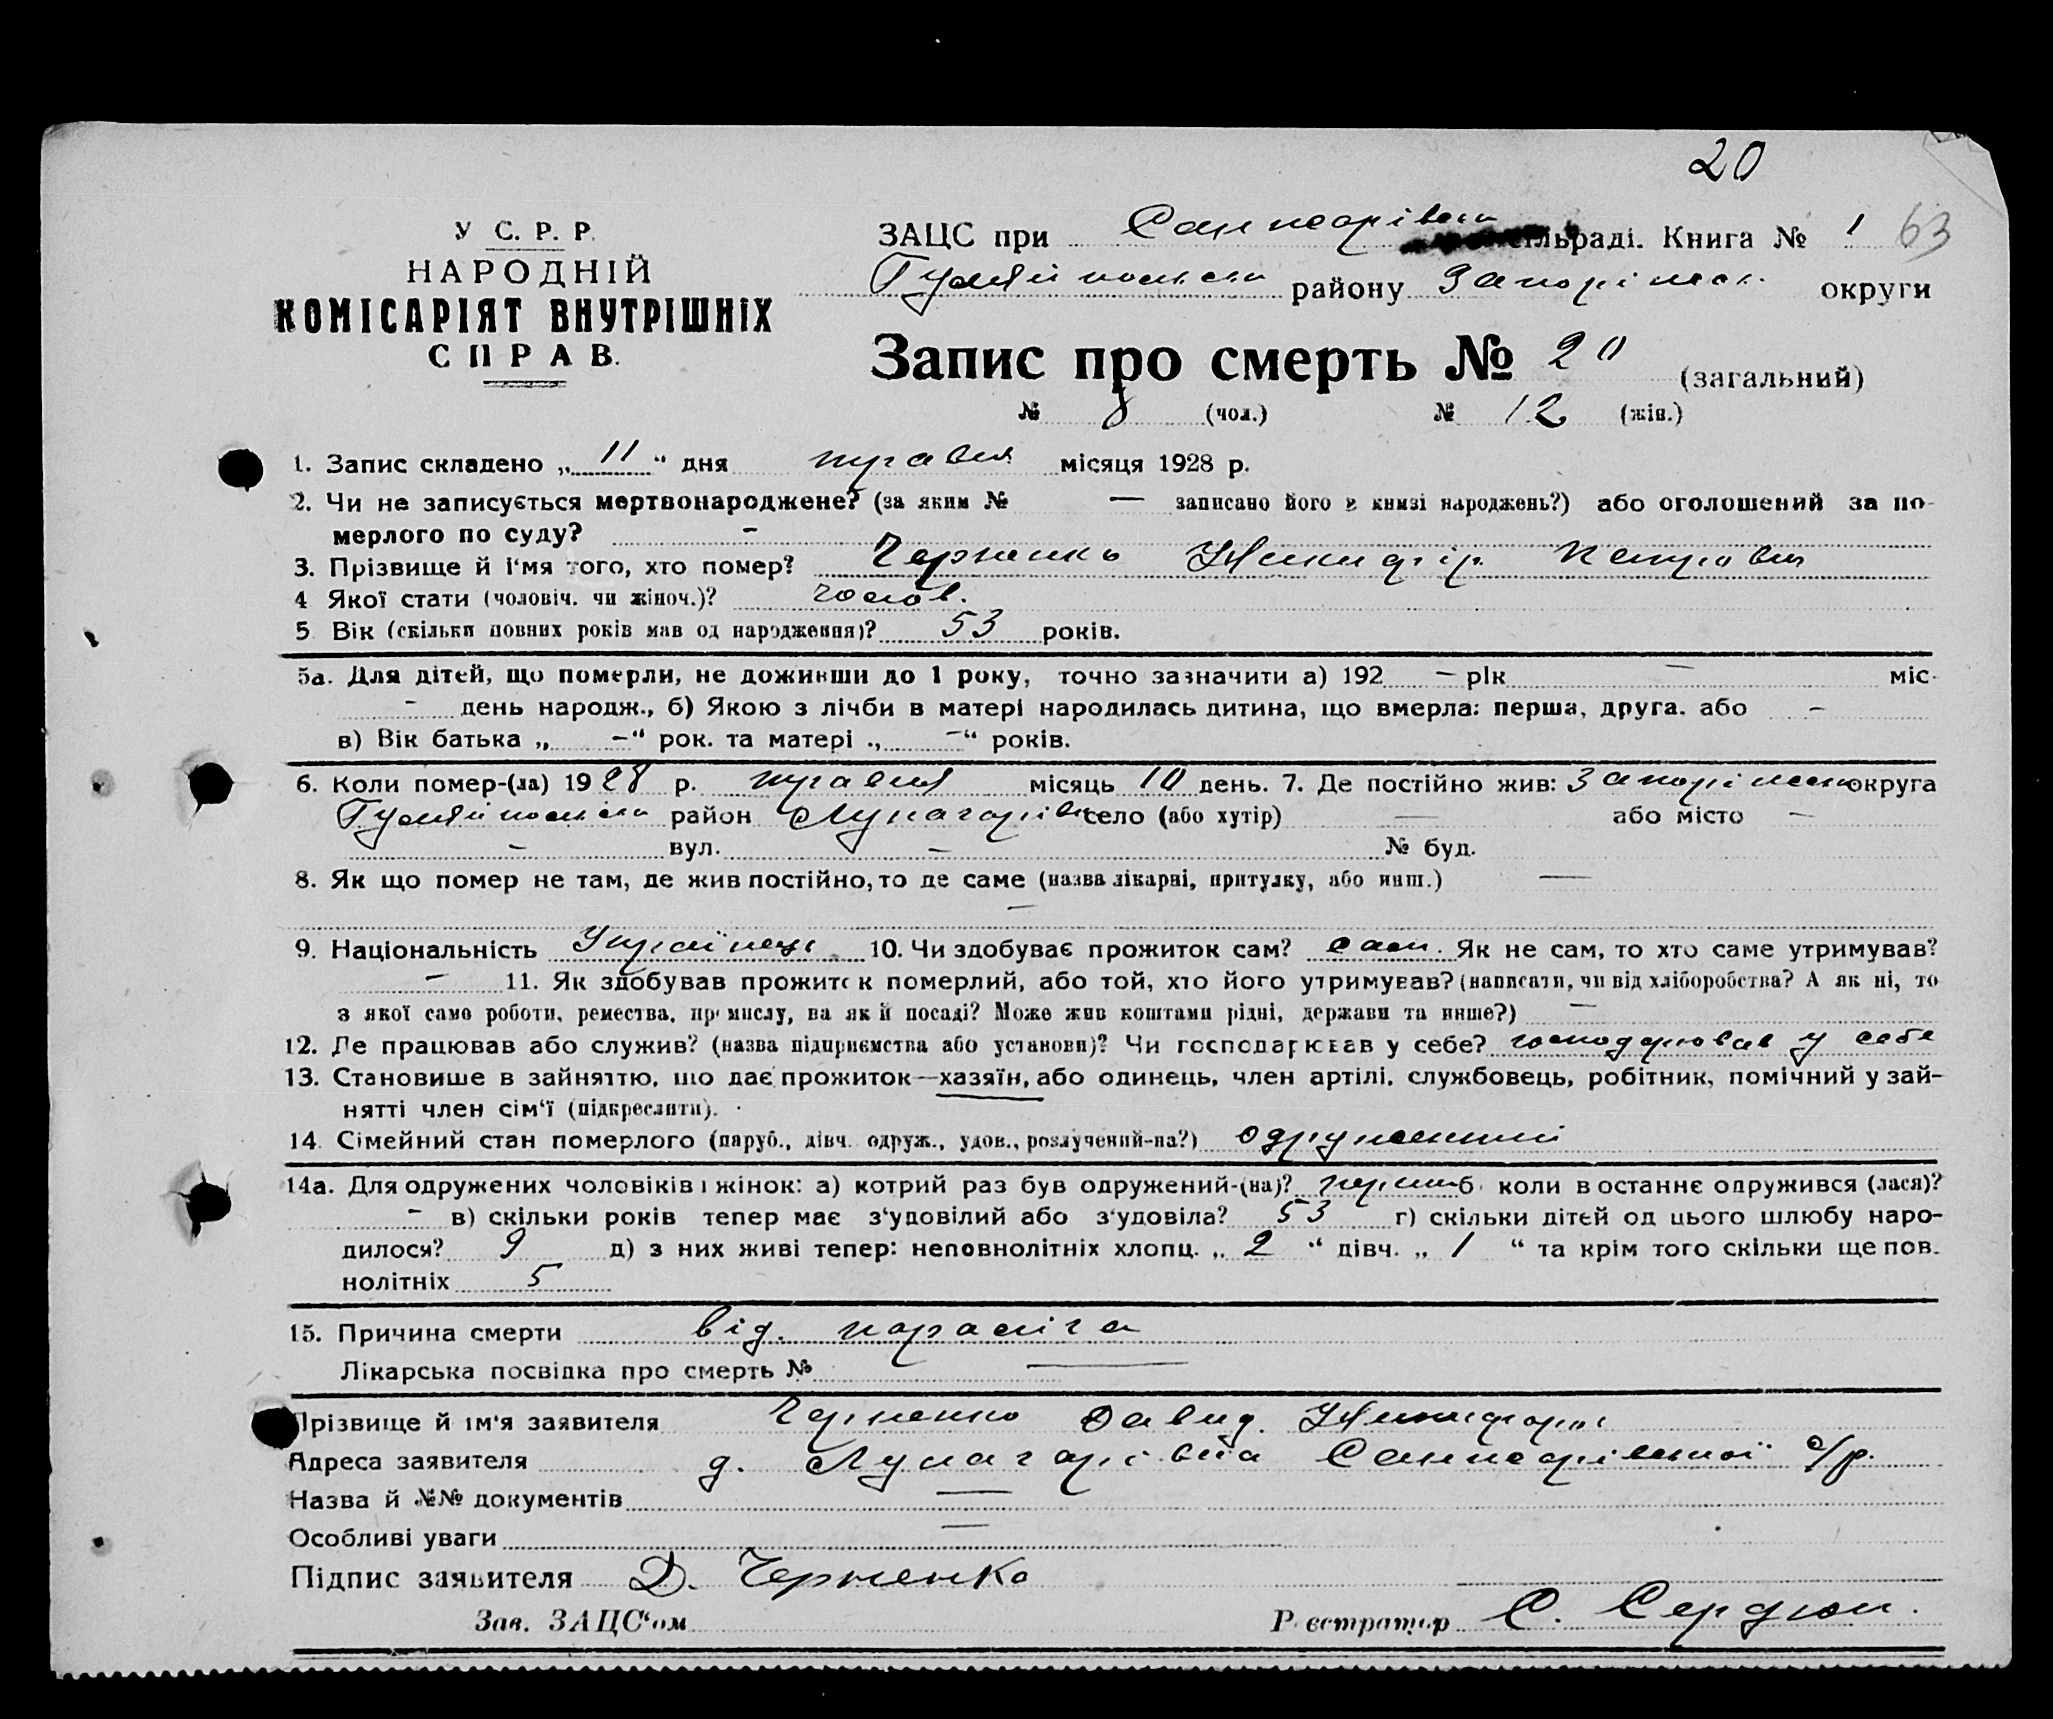 20
У С. Р. Р.
НАРОДНІЙ
КОМІСАРІЯТ ВНУТРІШНІХ
СПРАВ.
ЗАЦС при Санжарівськ сільраді. Книга № 1 63
Гуляйпольськ району Запоріжськ. округи
Запис про смерть № 20 (загальний)
№ 8 (чол.) № 12 (жін.)
1. Запис складено „ 11 “ дня травня місяця 1928 р.
2. Чи не записується мертвонароджене? (за яким № — записано його в книзі народжень?) або оголошений за по-
мерлого по суду? -
3. Прізвище й і‘мя того, хто помер? Черненко Никифір Петрович
4 Якої стати (чоловіч. чи жіноч.)? чолов.
5 Вік (скільки повних років мав од народження)? 53 років.
5а. Для дітей, що померли, не доживши до 1 року, точно зазначити а) 192 – рік – міс-
- день народж., б) Якою з лічби в матері народилась дитина, що вмерла: перша, друга. або –
в) Вік батька „ –“ рок. та матері „ –“ років.
6. Коли помер-(ла) 1928 р. травня місяць 10 день. 7. Де постійно жив: Запоріжськ округа
Гуляйпольськ район село (або хутір) — або місто —
– вул. – № буд.
8. Як що помер не там, де жив постійно, то де саме (назва лікарні, притулку, або инш.) —
–
9. Національність Українець 10. Чи здобуває прожиток сам? сам. Як не сам, то хто саме утримував?
– 11. Як здобував прожиток померлий, або той, хто його утримував? (написати, чи від хліборобства? А як ні, то
з якої само роботи, ремества, промислу, на якій посаді? Може жив коштами рідні, держави та инше?) —
12. Де працював або служив? (назва підприємства або установи)? Чи господарював у себе? господарював у себе
13. Становише в зайняттю, що дає прожиток—хазяїн, або одинець, член артілі, службовець, робітник, помічний у зай-
нятті член сім‘ї (підкреслити).
14. Сімейний стан померлого (паруб., дівч. одруж., удов., розлучений-на?) одружений
14а. Для одружених чоловіків і жінок: а) котрий раз був одружений-(на)? перший б) коли в останнє одружився (лася)?
– в) скільки років тепер має з‘удовілий або з‘удовіла? 53 г) скільки дітей од цього шлюбу наро-
дилося? 9 д) з них живі тепер: неповнолітніх хлопц. „ 2 “ дівч. „ 1 “ та крім того скільки ще пов.
нолітніх 5
15. Причина смерти від. параліча
Лікарська посвідка про смерть № —
Прізвище й ім'я заявителя Черненко Давид
Адреса заявителя Санжарівської с/р.
Назва й №№ документів —
Особливі уваги —
Підпис заявителя Д. Черненко
Зав. ЗАЦС‘ом Реєстратор С. Сердюк.